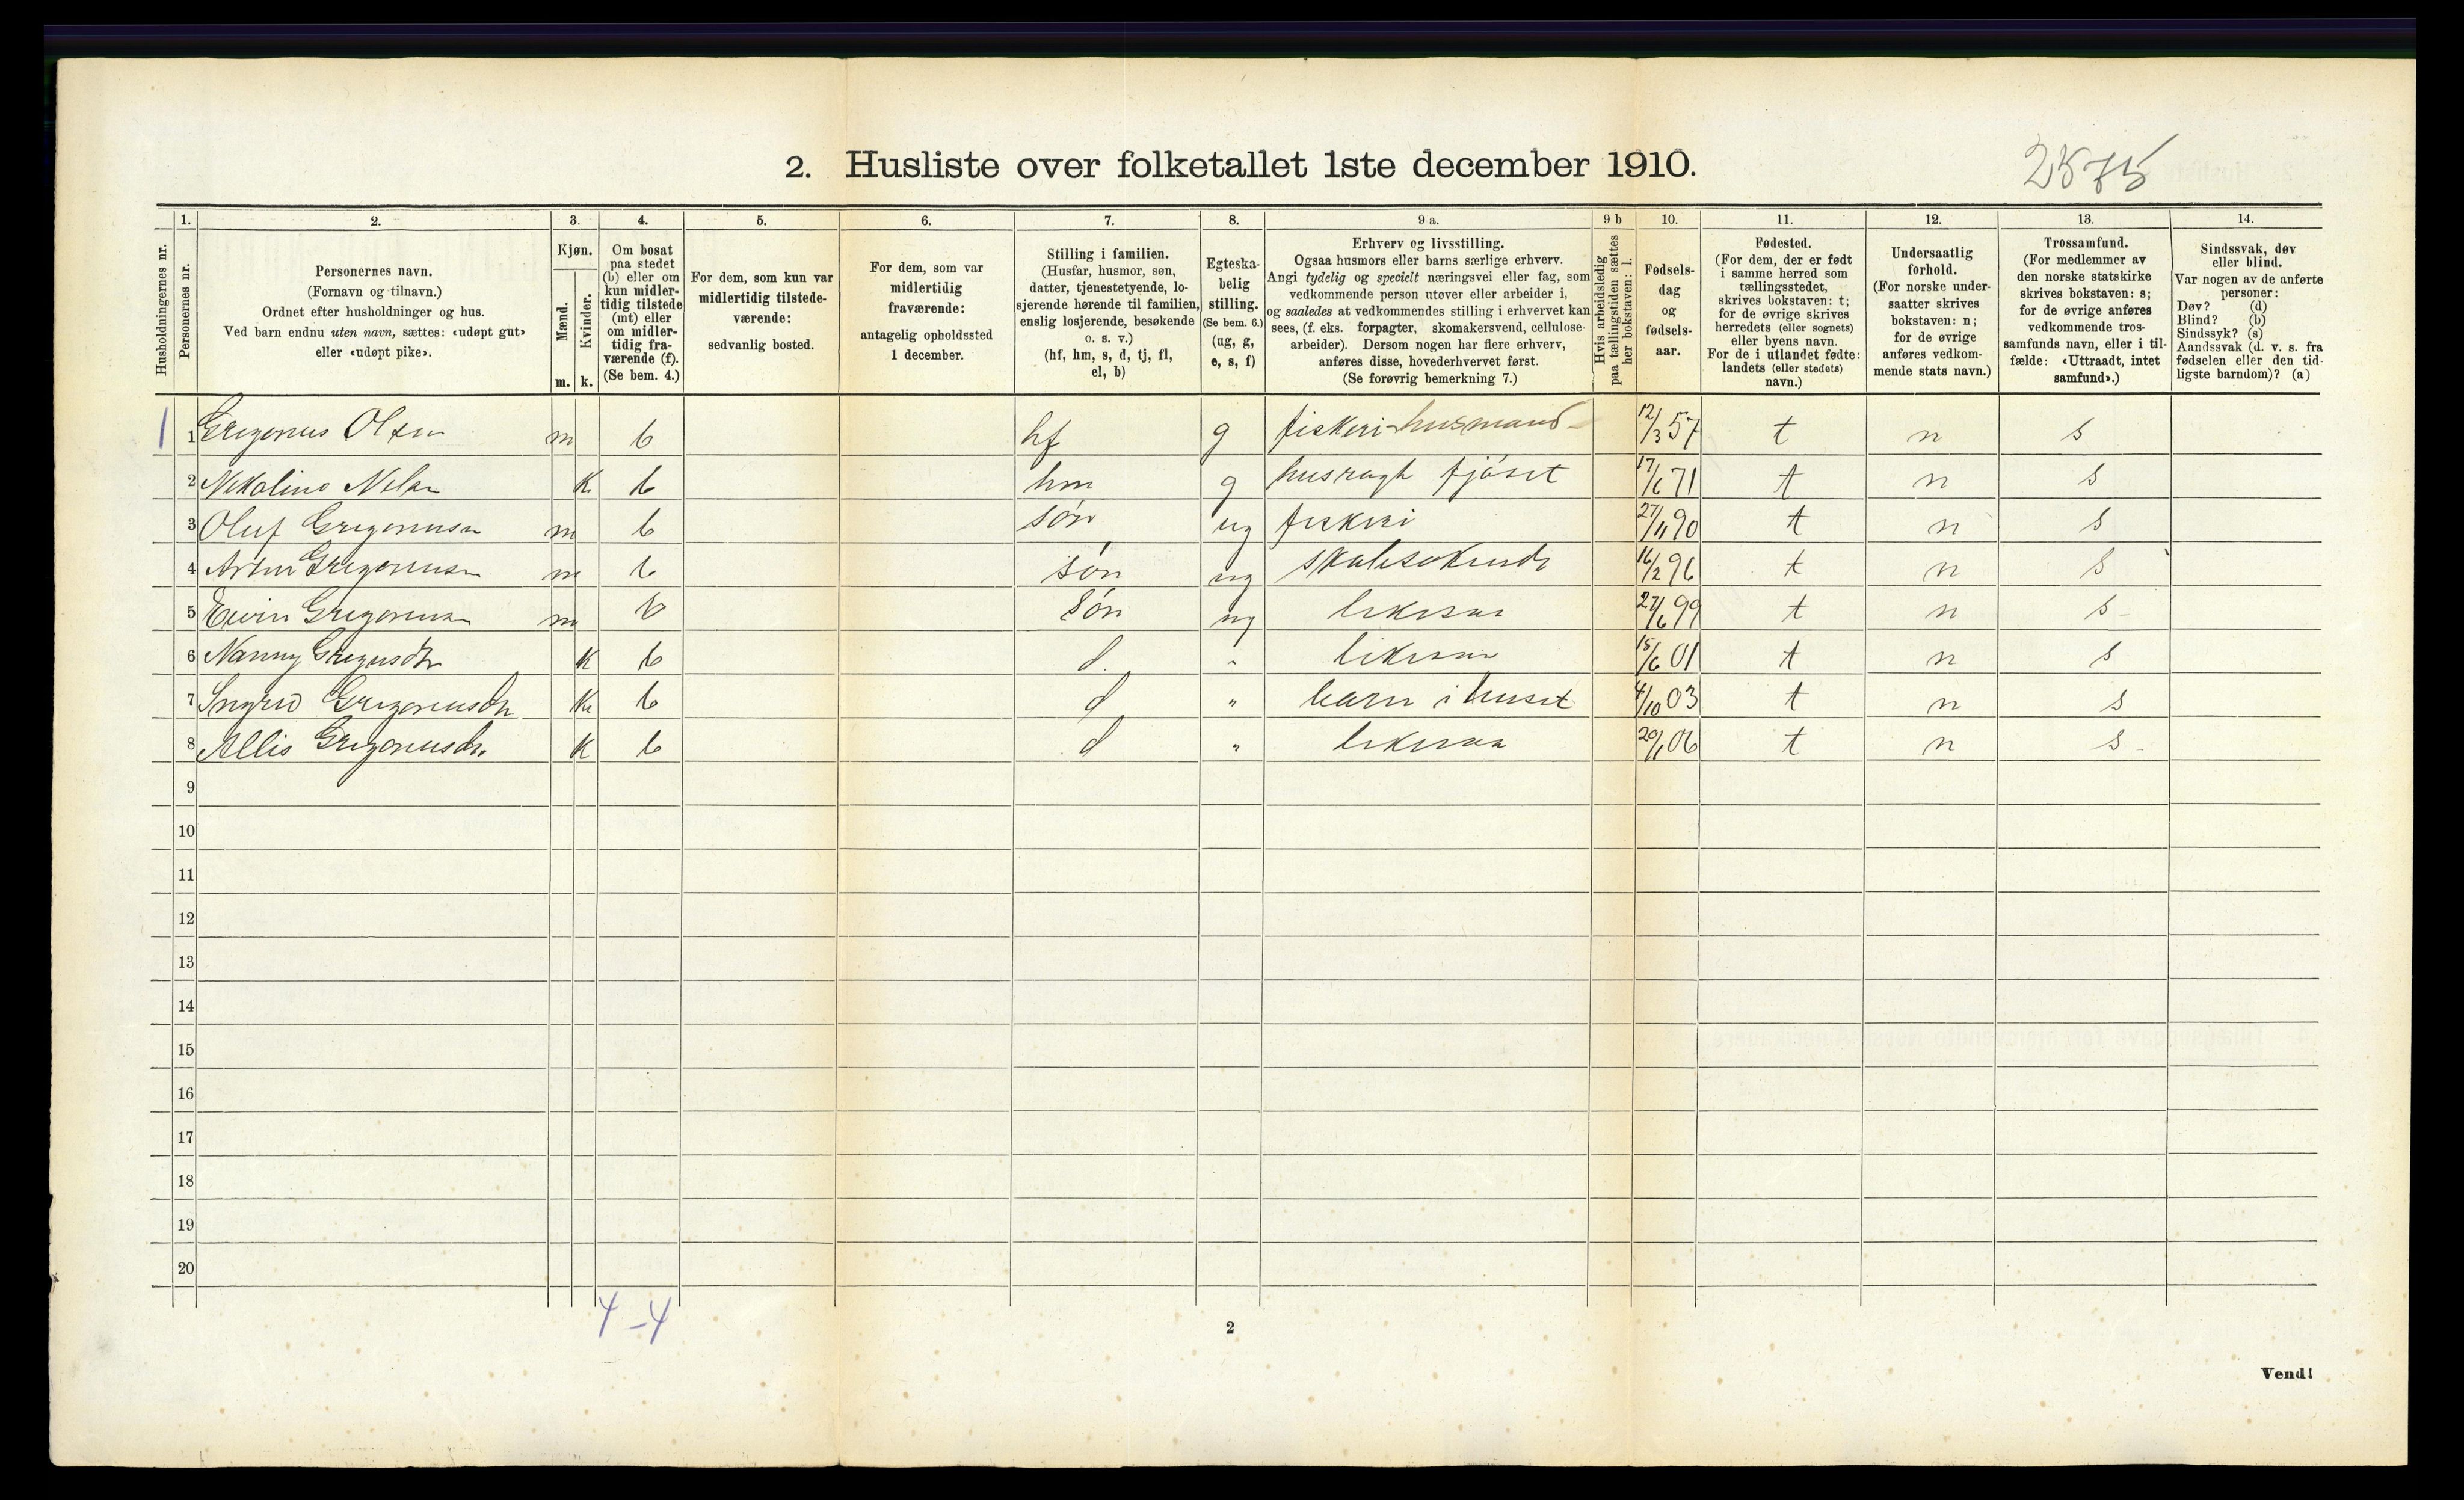 2. Husliste over folketallet 1ste december 1910.
2575
Husholdningernes nr.
1.
Personernes nr.
2.
Personernes navn.
(Fornavn og tilnavn.)
Ordnet efter husholdninger og hus.
Ved barn endnu uten navn, sættes: «udøpt gut»
eller «udøpt pike».
3.
Kjøn.
Mænd.
Kvinder.
m. k.
4.
Om bosat
paa stedet
(b) eller om
kun midler-
tidig tilstede
(mt) eller
om midler-
tidig fra-
værende (f).
(Se bem. 4.)
5.
For dem, som kun var
midlertidig tilstede-
værende:
sedvanlig bosted.
6.
For dem, som var
midlertidig
fraværende:
antagelig opholdssted
1 december.
7.
Stilling i familien.
(Husfar, husmor, søn,
datter, tjenestetyende, lo-
sjerende hørende til familien,
enslig losjerende, besøkende
o. s. v.)
(hf, hm, s, d, tj, fl,
el, b)
8.
Egteska-
belig
stilling.
(Se bem. 6.)
(ug, g,
e, s, f)
9 a.
Erhverv og livsstilling.
Ogsaa husmors eller barns særlige erhverv.
Angi tydelig og specielt næringsvei eller fag, som
vedkommende person utøver eller arbeider i,
og saaledes at vedkommendes stilling i erhvervet kan
sees, (f. eks. forpagter, skomakersvend, cellulose-
arbeider). Dersom nogen har flere erhverv,
anføres disse, hovederhvervet først.
(Se forøvrig bemerkning 7.)
9 b
Hvis arbeidsledig
paa tællingstiden sættes
her bokstaven: l.
10.
Fødsels-
dag
og
fødsels-
aar.
11.
Fødested.
(For dem, der er født
i samme herred som
tællingsstedet,
skrives bokstaven: t;
for de øvrige skrives
herredets (eller sognets)
eller byens navn.
For de i utlandet fødte:
landets (eller stedets)
navn.)
12.
Undersaatlig
forhold.
(For norske under-
saatter skrives
bokstaven: n;
for de øvrige
anføres vedkom-
mende stats navn.)
13.
Trossamfund.
(For medlemmer av
den norske statskirke
skrives bokstaven: s;
for de øvrige anføres
vedkommende tros-
samfunds navn, eller i til-
fælde: «Uttraadt, intet
samfund».)
14.
Sindssvak, døv
eller blind.
Var nogen av de anførte
personer:
Døv? (d)
Blind? (b)
Sindssyk? (s)
Aandssvak (d. v. s. fra
fødselen eller den tid-
ligste barndom)? (a)
1 1 Gregorius Olsen m b hf g fiskeri-husmand 12/3 57 t n s
2 Nikoline k b hm g fjöset 17/6 71 t n s
3 Oluf m b sön ug fiskeri 27/11 90 t n s
4 m b sön ug 16/2 96 t n s
5 m b sön ug likesaa 27/6 99 t n s
6 Nanny k b d " likesaa 15/6 01 t n s
7 Ingrid k b d " barn i huset 4/10 03 t n s
8 Allis k b d " likesaa 20/1 06 t n s
9
10
11
12
13
14
15
16
17
18
19
20
4 - 4
2
Vend!